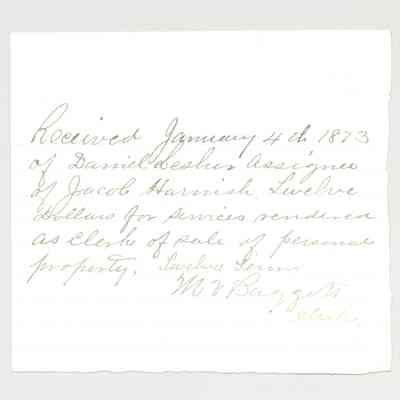 Received January 4th 1873
of Daniel Lesher Assignee
of Jacob Harnish. Twelve
Dollars for services rendered
as Clerk of sale of personal
property. Twelve
M V Baggets
Clerk.